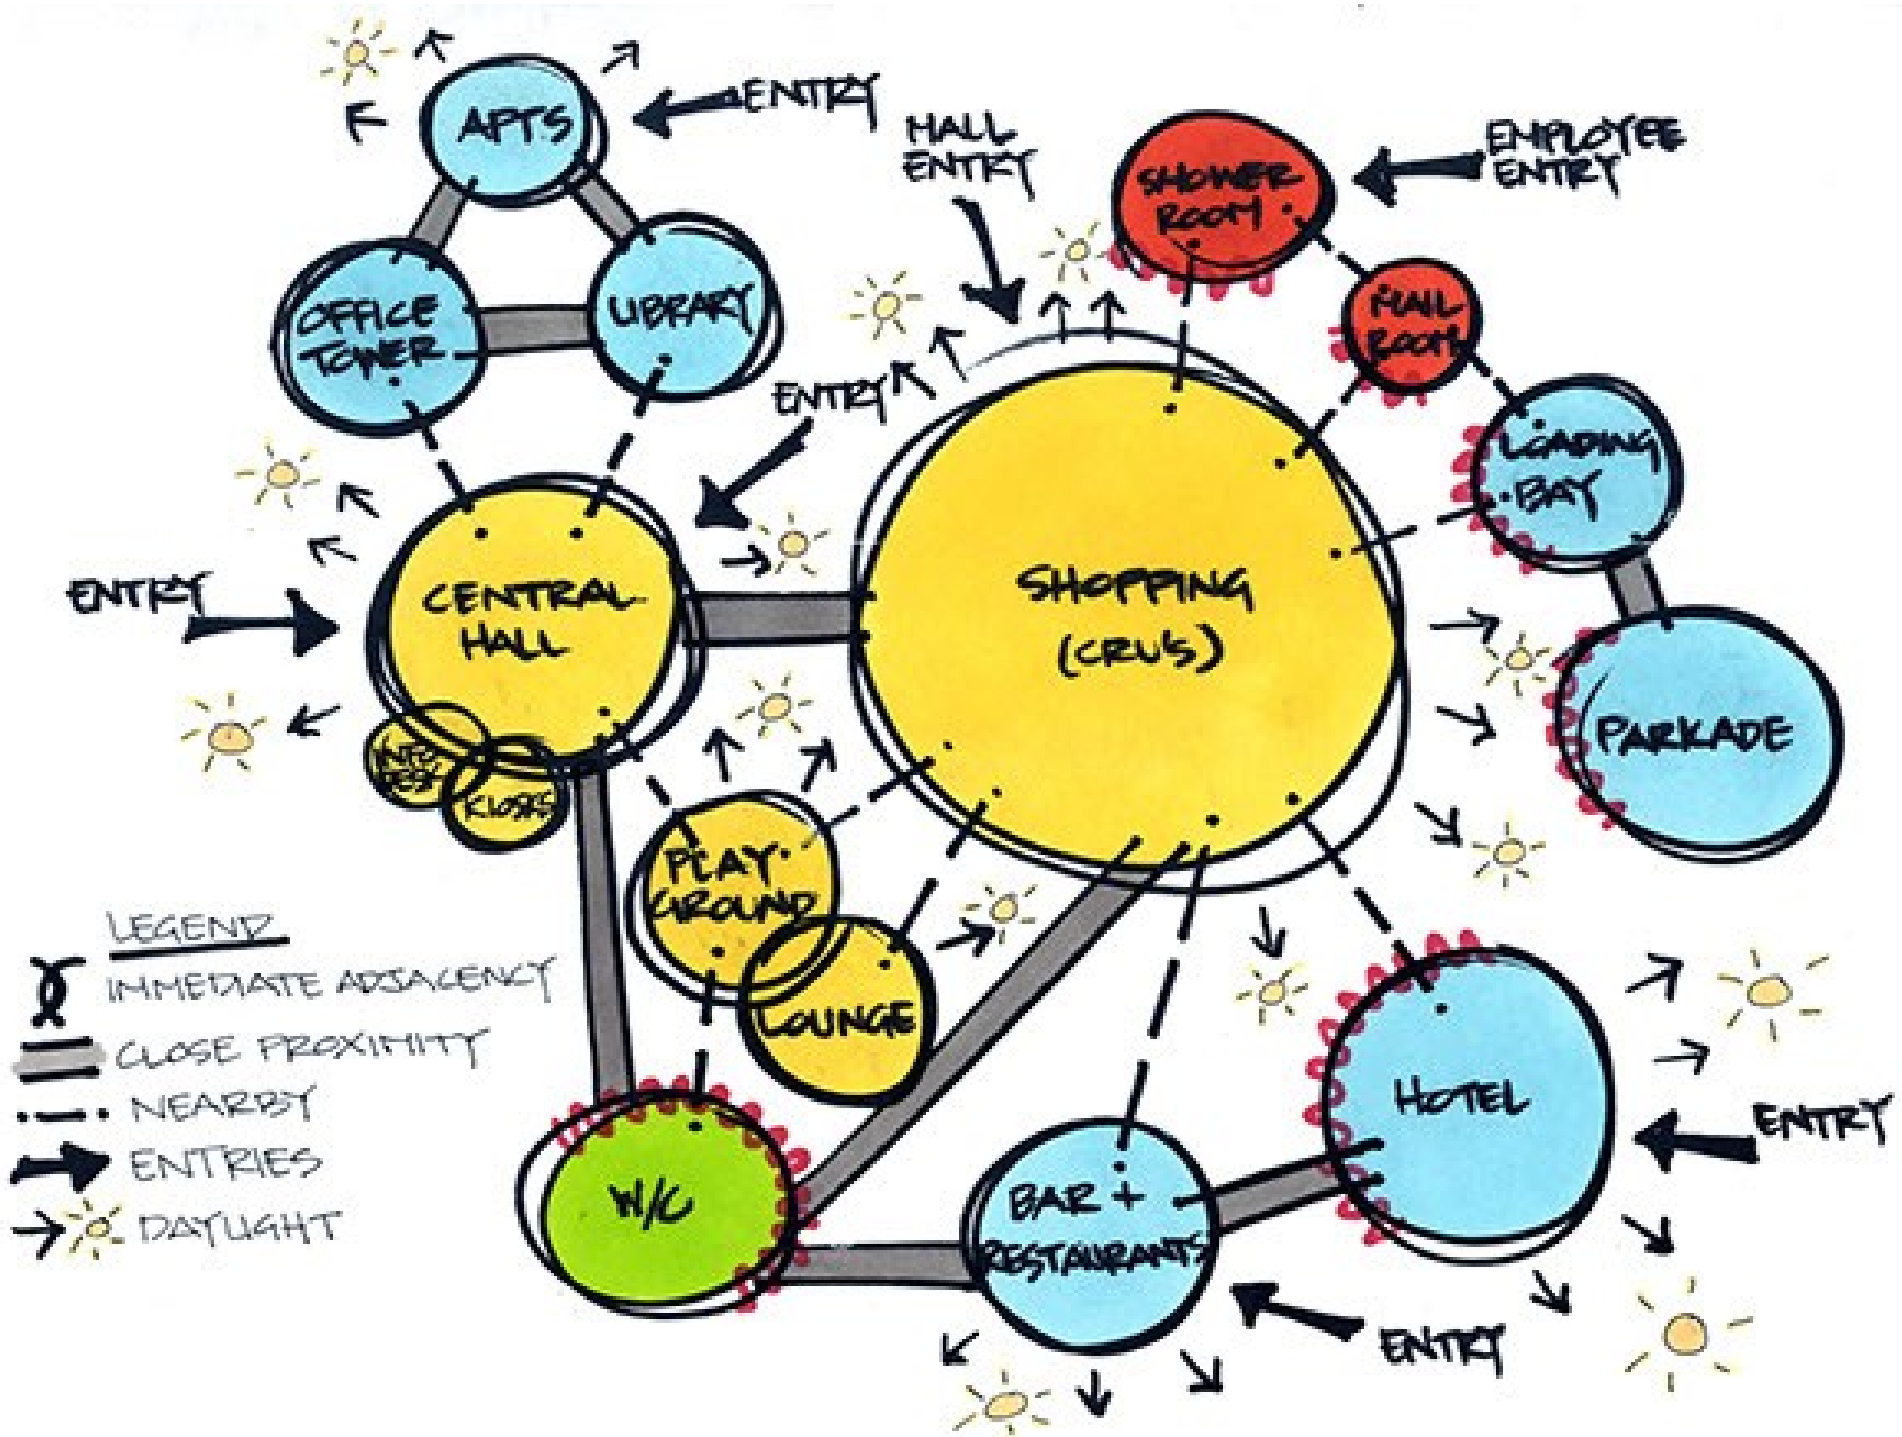 APTS
ENTRY
MALL
ENTRY
SHOWER
ROOM
EMPLOYEE
ENTRY
OFFICE
TOWER
LIBRARY
MAIL
ROOM
ENTRY
LOADING
BAY
CENTRAL
HALL
ENTRY
SHOPPING
(CRU'S)
PARKADE
INFO
DESK
KIOSKS
PLAY
GROUND
LOUNGE
LEGEND
IMMEDIATE ADJACENCY
CLOSE PROXIMITY
NEARBY
ENTRIES
DAYLIGHT
W/C
BAR +
RESTAURANTS
HOTEL
ENTRY
ENTRY